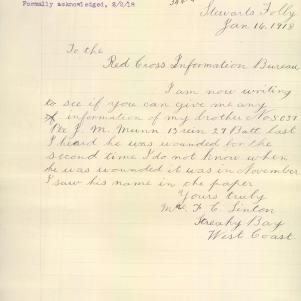 Formally acknowledged, 2/2/18
Stewarts Folly
Jan 16. 1918
To the
Red Cross Information Bureau
I am now writing
to see if you can give me any
information of my brother No 5037
Pte J. M. Munn 13 rein 27 Batt last
I heard he was wounded for the
second time I do not know when
he was wounded it was in November
I saw his name in the paper
Yours truly
Mrs F C Linton
Streaky Bay
West Coast